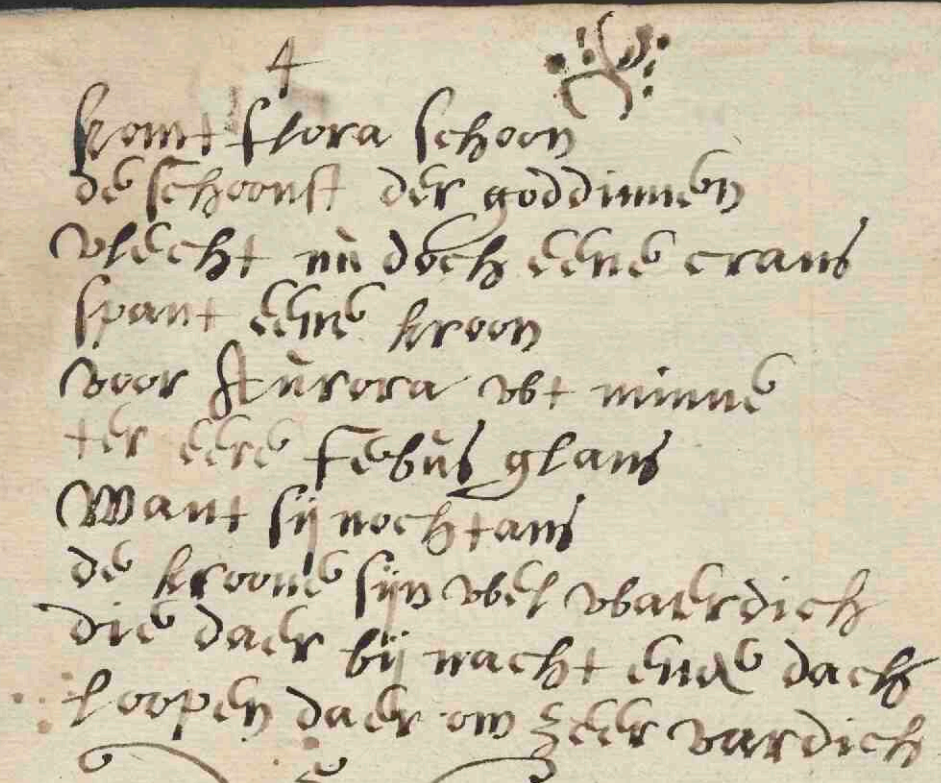 4
komt flora schoon
de schoonst der goddinnen
vlecht nu doch eene crans
spant eene kroon
voor Aurora wt minne
ter eere febus glans
Want sij nochtans
de kroone sijn wel waerdich
die daer bij nacht ende dach
loopen daer om zeer vardich